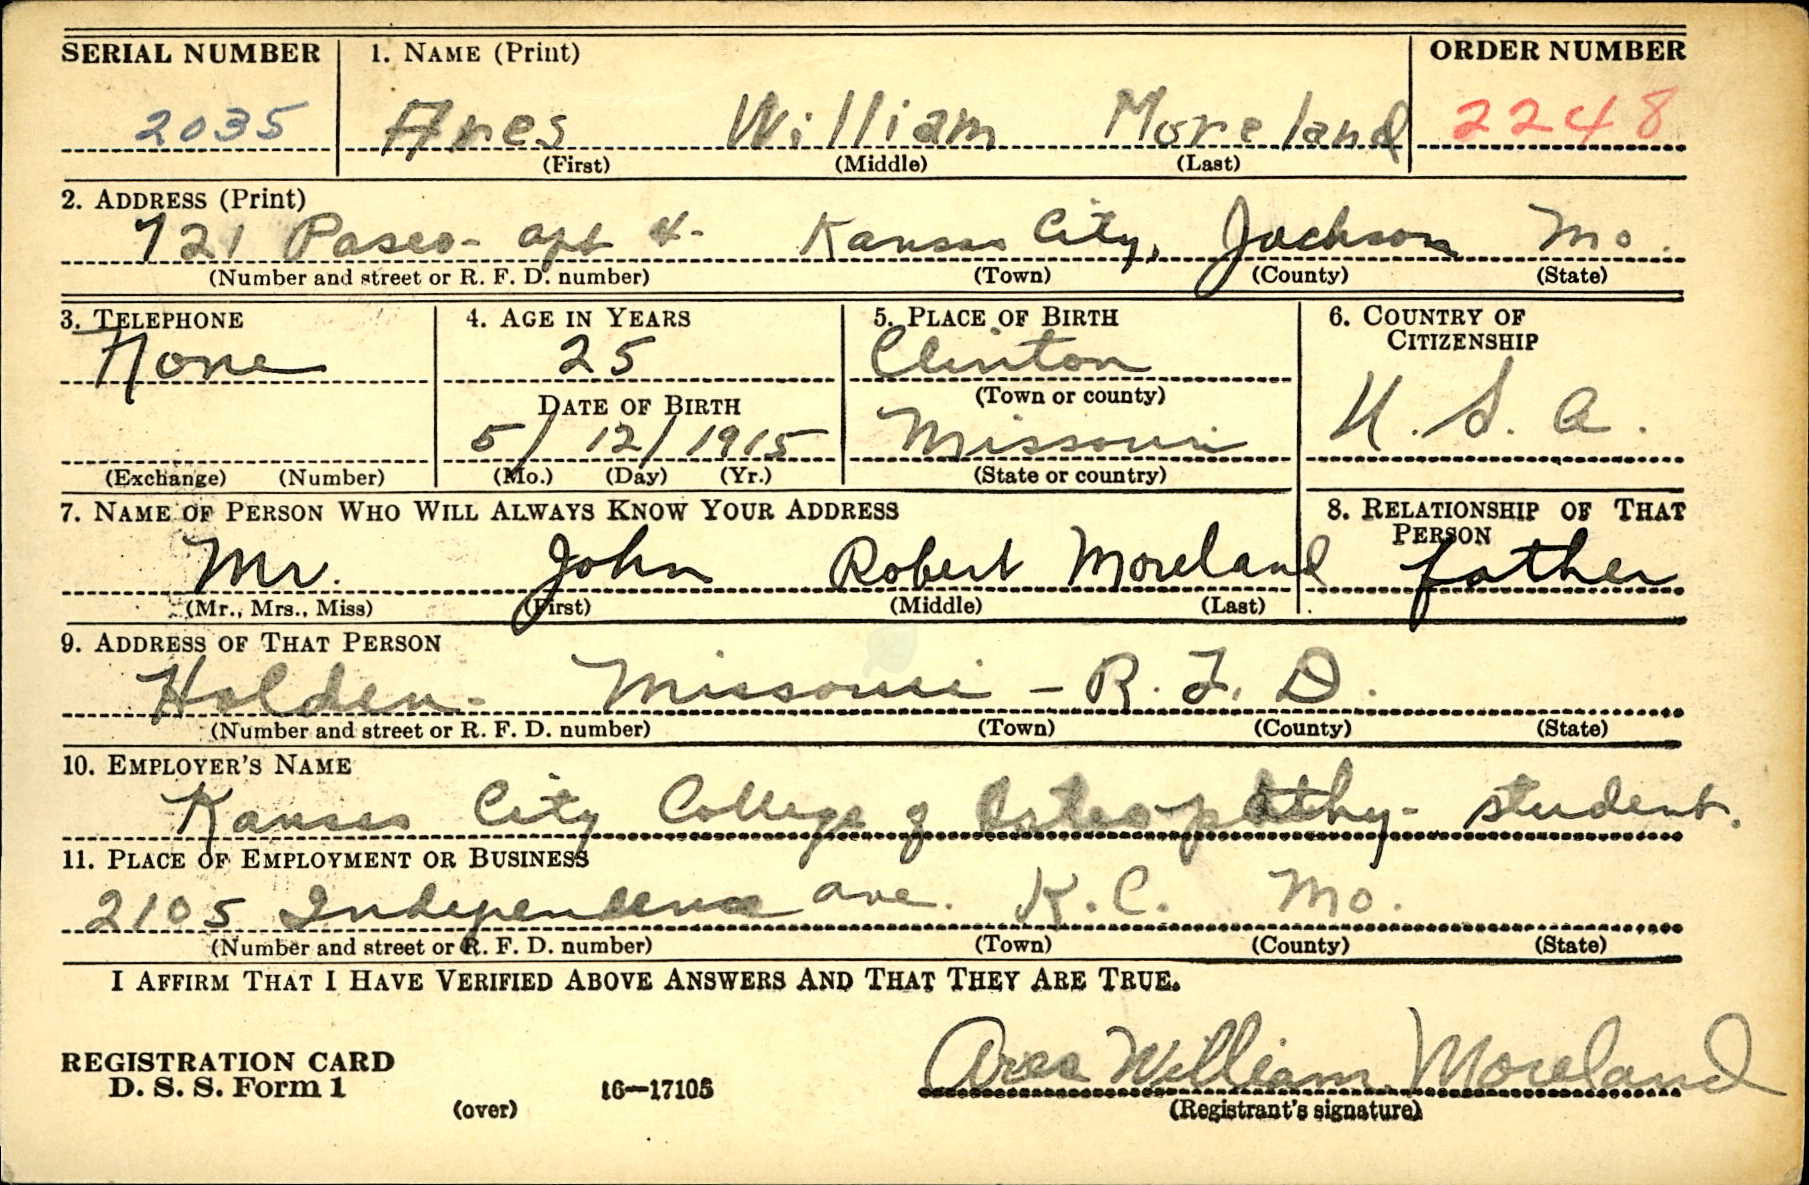 SERIAL NUMBER 1. NAME (Print) ORDER NUMBER
2035 Ares William Moreland 2248
(First) (Middle) (Last)
2. ADDRESS (Print)
721 Paseo - apt 4 - Kansas City, Jackson Mo.
(Number and street or R. F. D. number) (Town) (County) (State)
3. TELEPHONE 4. AGE IN YEARS 5. PLACE OF BIRTH 6. COUNTRY OF CITIZENSHIP
None 25 Clinton
(Town or county)
DATE OF BIRTH
5/12/1915 Missouri U.S.A.
(Exchange) (Number) (Mo.) (Day) (Yr.) (State or country)
7. NAME OF PERSON WHO WILL ALWAYS KNOW YOUR ADDRESS 8. RELATIONSHIP OF THAT PERSON
Mr. John Robert Moreland father
(Mr., Mrs., Miss) (First) (Middle) (Last)
9. ADDRESS OF THAT PERSON
Holden - Missouri - R.F.D.
(Number and street or R. F. D. number) (Town) (County) (State)
10. EMPLOYER'S NAME
Kansas City College of Osteopathy - student.
11. PLACE OF EMPLOYMENT OR BUSINESS
2105 Independence ave. K.C. Mo.
(Number and street or R. F. D. number) (Town) (County) (State)
I AFFIRM THAT I HAVE VERIFIED ABOVE ANSWERS AND THAT THEY ARE TRUE.
REGISTRATION CARD
D. S. S. Form 1 16—17105 Ares William Moreland
(over) (Registrant's signature)